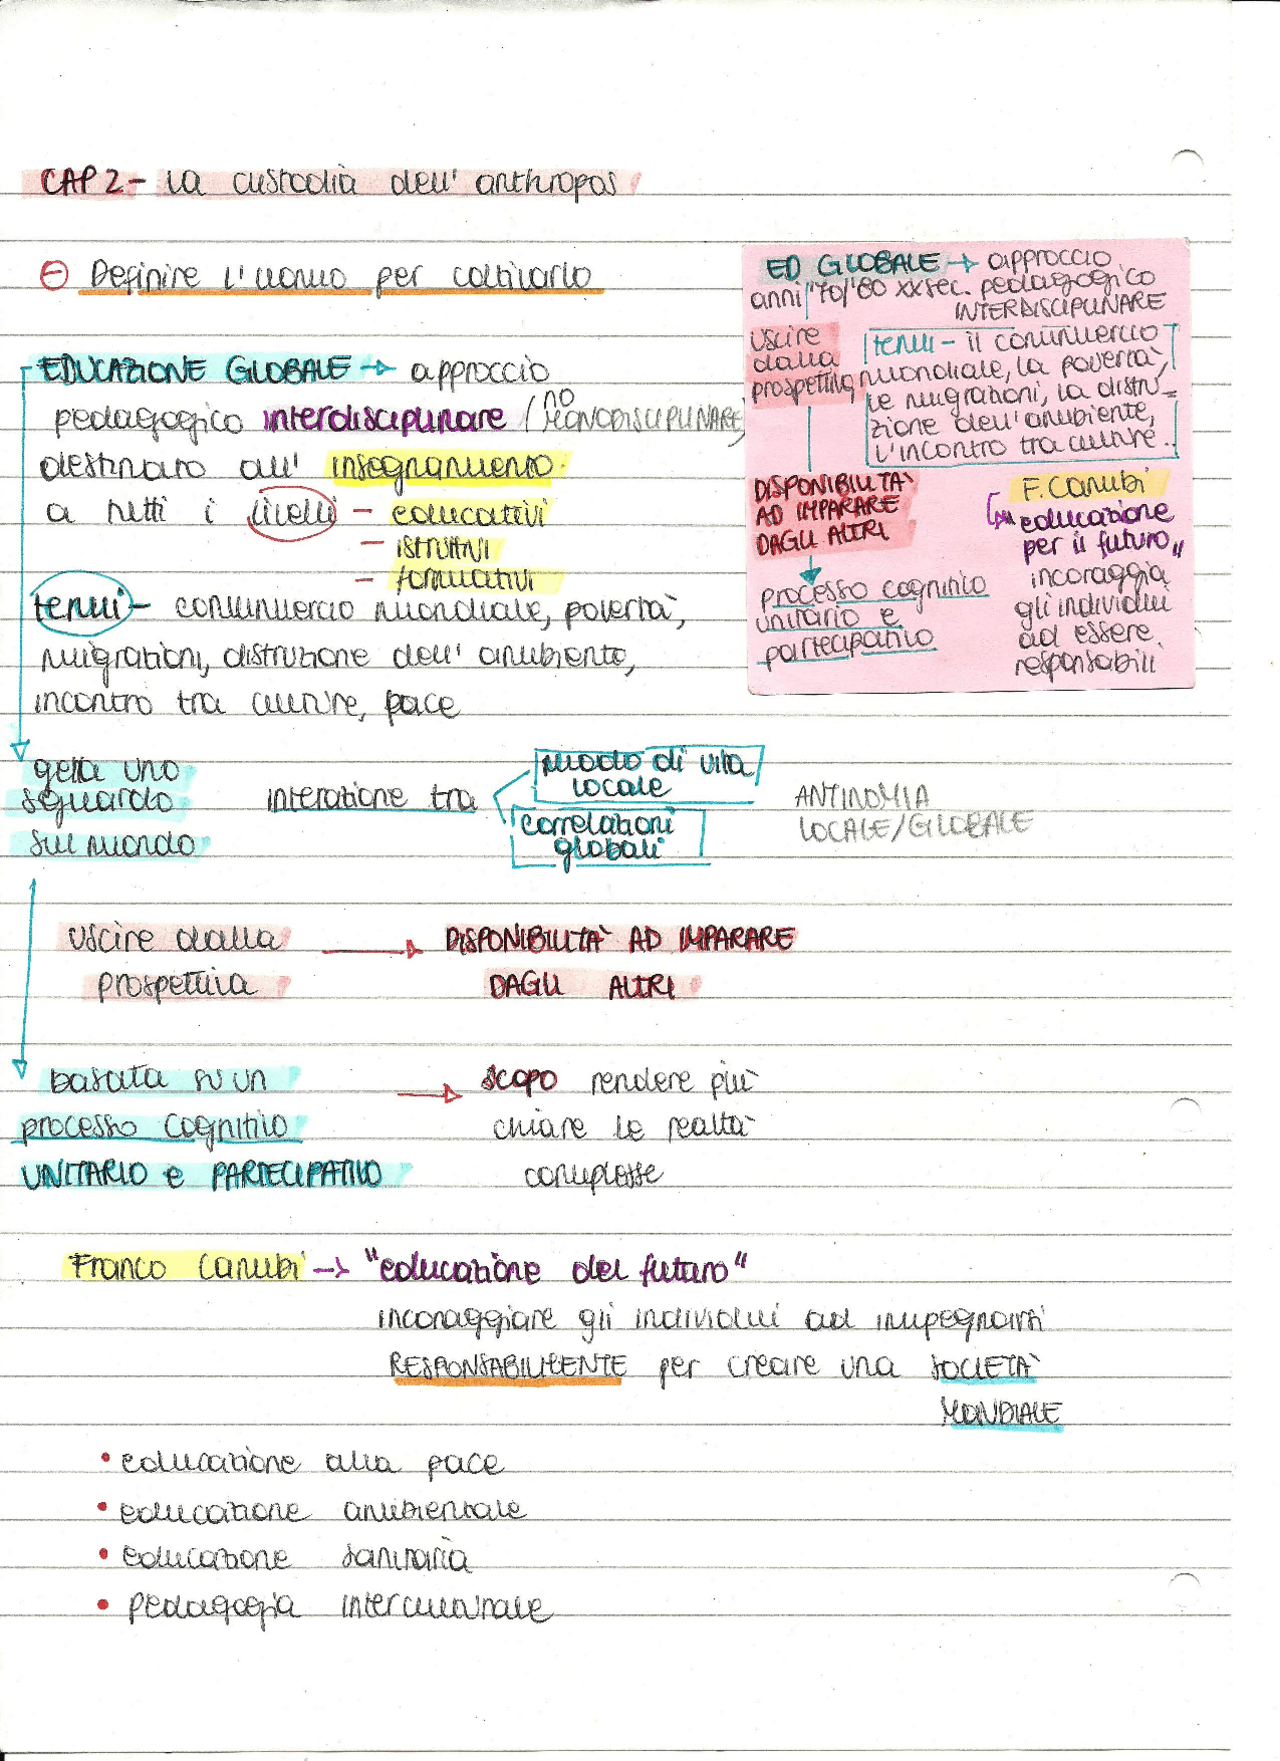 CAP 2 - La custodia dell' anthropos
Definire l'uomo per coltivarlo
EDUCAZIONE GLOBALE → approccio
pedagogico interdisciplinare (no MONODISCIPLINARE)
destinato all' insegnamento
a tutti i livelli - educativi
- istruttivi
- formativi
temi - commercio mondiale, povertà,
migrazioni, distruzione dell' ambiente,
incontro tra culture, pace
getta uno
sguardo
sul mondo
interazione tra
modo di vita
locale
correlazioni
globali
ANTINOMIA
LOCALE/GLOBALE
uscire dalla → DISPONIBILITÀ AD IMPARARE
prospettiva DAGLI ALTRI
basata su un → scopo rendere più
processo cognitivo chiare le realtà
UNITARIO e PARTECIPATIVO complesse
Franco Cambi → "educazione del futuro"
incoraggiare gli individui ad impegnarsi
RESPONSABILMENTE per creare una SOCIETÀ
MONDIALE
• educazione alla pace
• educazione ambientale
• educazione sanitaria
• pedagogia interculturale
ED GLOBALE → approccio
anni '70/'80 XX sec. pedagogico
INTERDISCIPLINARE
uscire
dalla
prospettiva
temi - il commercio
mondiale, la povertà,
le migrazioni, la distru-
zione dell'ambiente,
l'incontro tra culture.
DISPONIBILITÀ
AD IMPARARE
DAGLI ALTRI
processo cognitivo
unitario e
partecipativo
F. Cambi
"educazione
per il futuro"
incoraggia
gli individui
ad essere
responsabili